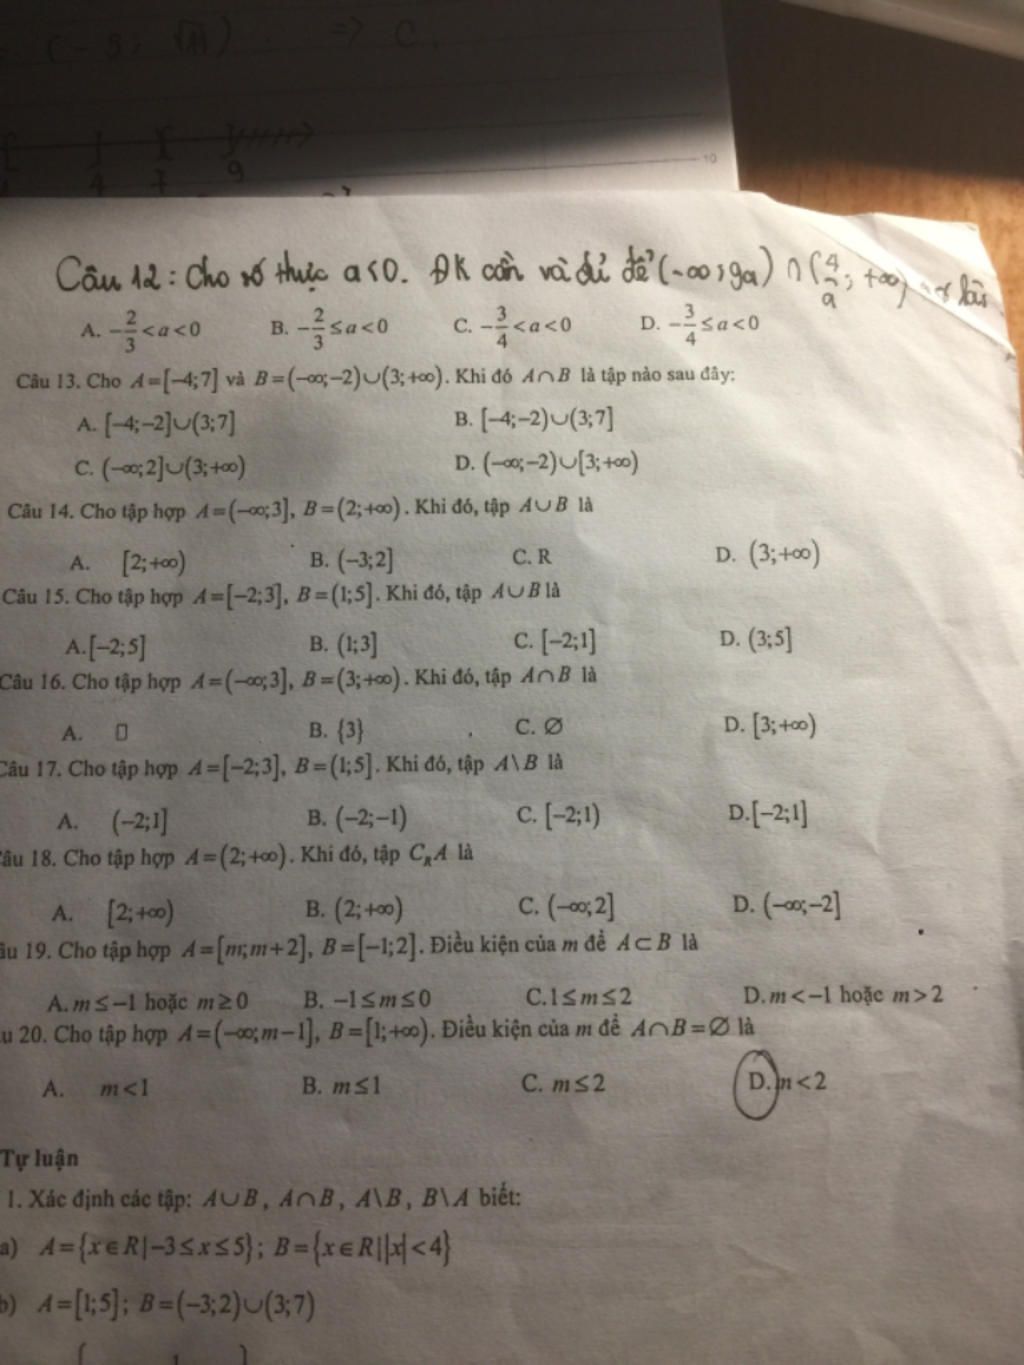 (-3; √11) => C.
4 7 9
10
Câu 12: Cho số thực a<0. ĐK cần và đủ để (-∞; 9a) ∩ (4/a; +∞) là
A. -2/3 < a < 0 B. -2/3 ≤ a < 0 C. -3/4 < a < 0 D. -3/4 ≤ a < 0
Câu 13. Cho A=[-4;7] và B=(-∞;-2)∪(3;+∞). Khi đó A∩B là tập nào sau đây:
A. [-4;-2]∪(3;7] B. [-4;-2)∪(3;7]
C. (-∞;2]∪(3;+∞) D. (-∞;-2)∪[3;+∞)
Câu 14. Cho tập hợp A=(-∞;3], B=(2;+∞). Khi đó, tập A∪B là
A. [2;+∞) B. (-3;2] C. R D. (3;+∞)
Câu 15. Cho tập hợp A=[-2;3], B=(1;5]. Khi đó, tập A∪B là
A.[-2;5] B. (1;3] C. [-2;1] D. (3;5]
Câu 16. Cho tập hợp A=(-∞;3], B=(3;+∞). Khi đó, tập A∩B là
A. ▯ B. {3} C. ∅ D. [3;+∞)
Câu 17. Cho tập hợp A=[-2;3], B=(1;5]. Khi đó, tập A\B là
A. (-2;1] B. (-2;-1) C. [-2;1) D.[-2;1]
âu 18. Cho tập hợp A=(2;+∞). Khi đó, tập C_R A là
A. [2;+∞) B. (2;+∞) C. (-∞;2] D. (-∞;-2]
âu 19. Cho tập hợp A=[m;m+2], B=[-1;2]. Điều kiện của m để A⊂B là
A. m≤-1 hoặc m≥0 B. -1≤m≤0 C.1≤m≤2 D.m<-1 hoặc m>2
u 20. Cho tập hợp A=(-∞;m-1], B=[1;+∞). Điều kiện của m để A∩B=∅ là
A. m<1 B. m≤1 C. m≤2 D. m<2
Tự luận
1. Xác định các tập: A∪B, A∩B, A\B, B\A biết:
a) A={x∈R|-3≤x≤5}; B={x∈R||x|<4}
b) A=[1;5]; B=(-3;2)∪(3;7)